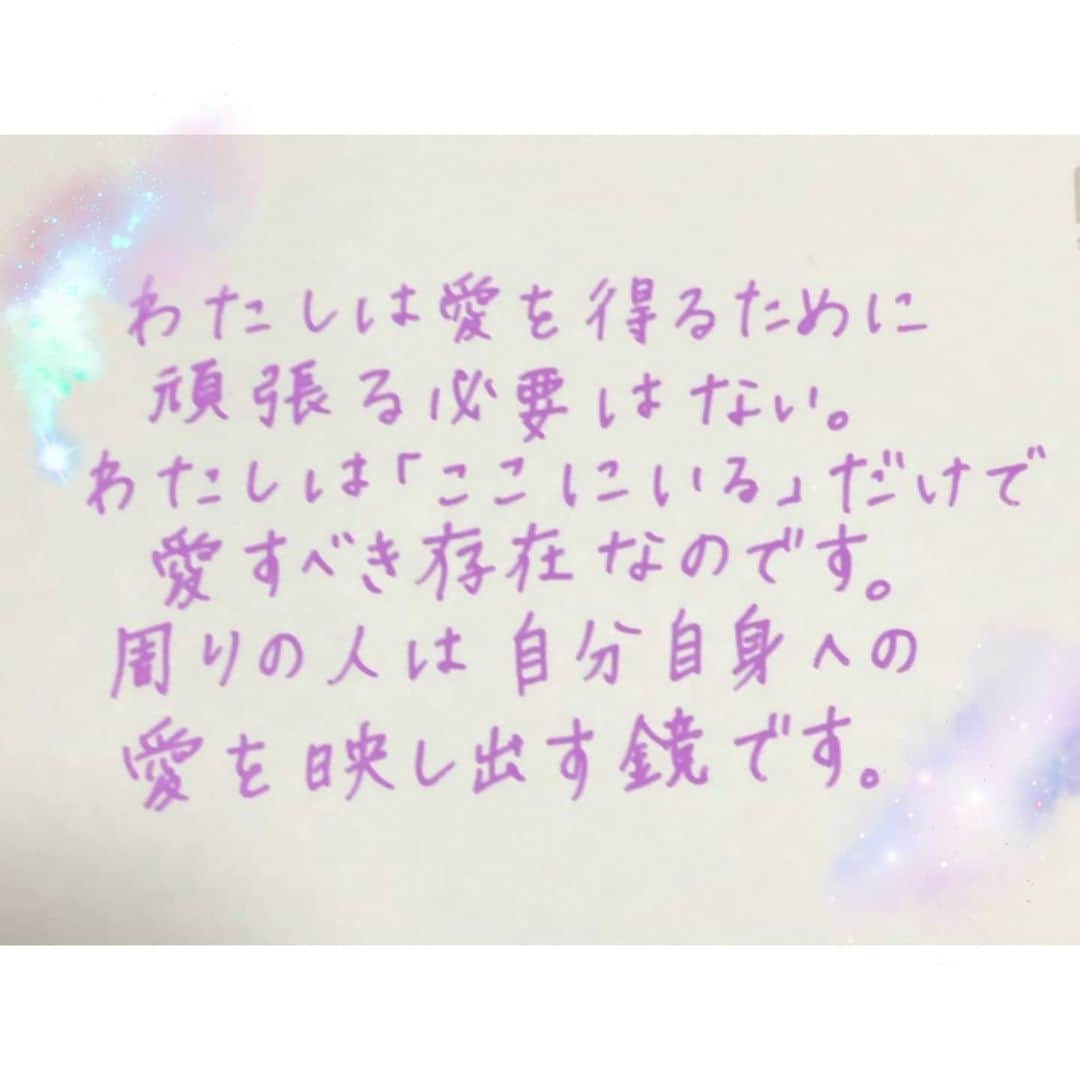 わたしは愛を得るために
頑張る必要はない。
わたしは「ここにいる」だけで
愛すべき存在なのです。
周りの人は自分自身への
愛を映し出す鏡です。